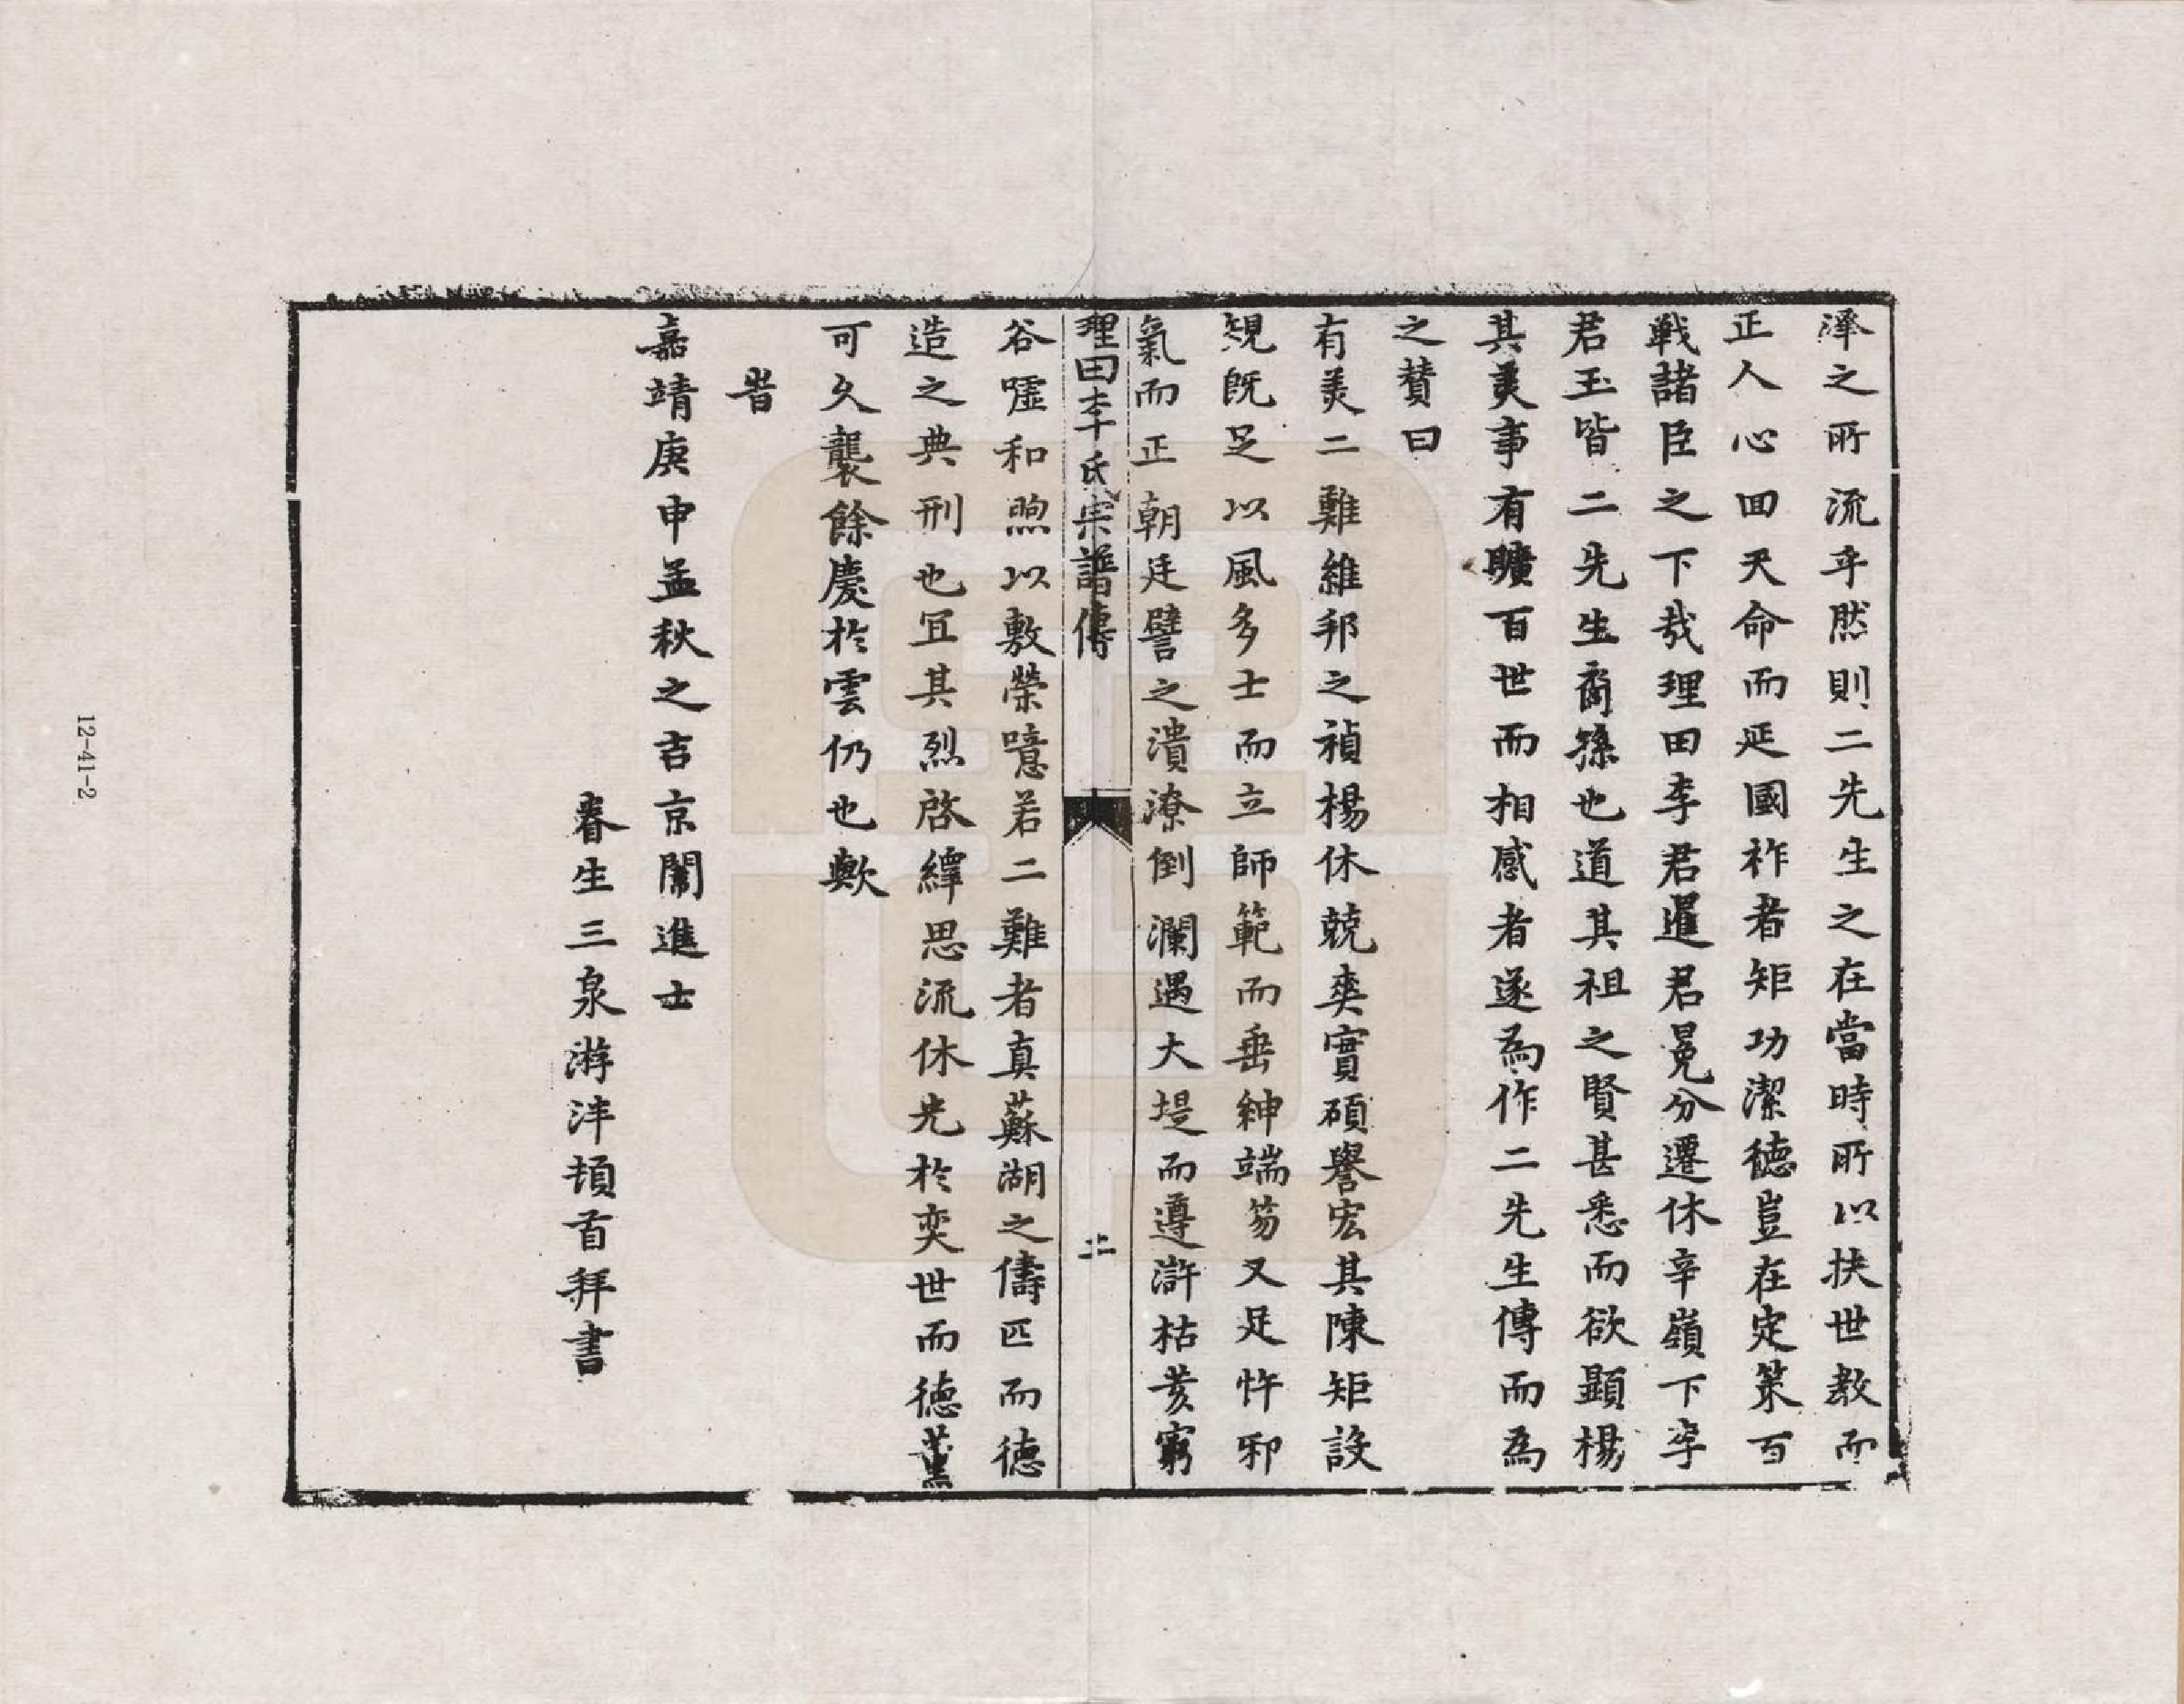 澤之所流乎然則二先生之在當時所以扶世教而
正人心回天命而延國祚者矩功潔德豈在定策百
戰諸臣之下哉理田李君暹君冕分遷休辛嶺下李
君玉皆二先生裔孫也道其祖之賢甚悉而欲顯楊
其美事有曠百世而相感者遂為作二先生傳而為
之贊曰
有美二難維邦之禎楊休兢奕實碩譽宏其陳矩設
規既足以風多士而立師範而垂紳端笏又足忤邪
氣而正朝廷譬之潰潦倒瀾遇大堤而遵滸枯荄窮
理田李氏宗譜傳
谷噓和煦以敷榮噫若二難者真蘇湖之儔匹而德
造之典刑也宜其烈啓繹思流休光於奕世而德薰
可久襲餘慶於雲仍也歟
旹
嘉靖庚申孟秋之吉京闈進士
眷生三泉游泮頓首拜書
12-41-2